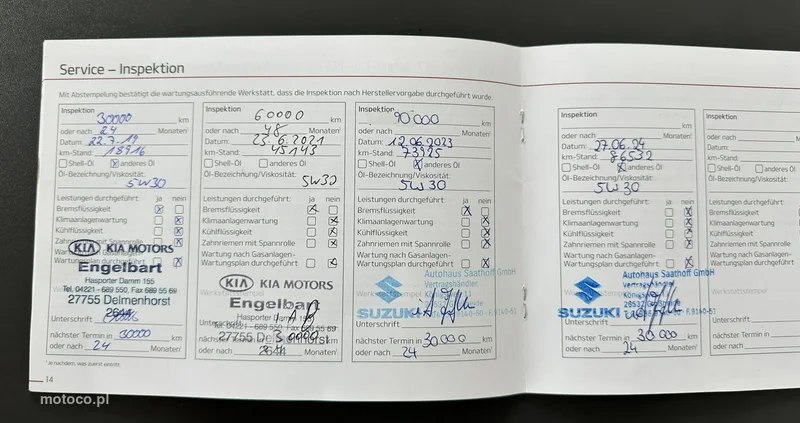 Service – Inspektion
Mit Abstempelung bestätigt die wartungsausführende Werkstatt, dass die Inspektion nach Herstellervorgabe durchgeführt wurde.
Inspektion
30000 km
oder nach 24 Monaten¹
Datum: 22.7.19
km-Stand: 18916
Shell-Öl anderes Öl
Öl-Bezeichnung/Viskosität:
5W30
Leistungen durchgeführt: ja nein
Bremsflüssigkeit
Klimaanlagenwartung
Kühlflüssigkeit
Zahnriemen mit Spannrolle
KIA KIA MOTORS
Wartungsplan durchgeführt
Engelbart
Hasporter Damm 155
Tel. 04221 - 689 550, Fax 689 55 69
27755 Delmenhorst
2644
Unterschrift
nächster Termin in 30000 km
oder nach 24 Monaten¹
Inspektion
60000 km
oder nach 48 Monaten¹
Datum: 25.6.2021
km-Stand: 45143
Shell-Öl anderes Öl
Öl-Bezeichnung/Viskosität:
5W30
Leistungen durchgeführt: ja nein
Bremsflüssigkeit
Klimaanlagenwartung
Kühlflüssigkeit
Zahnriemen mit Spannrolle
Wartung nach Gasanlagen-
Wartungsplan durchgeführt
KIA KIA MOTORS
Engelbart
Hasporter Damm 155
Tel. 04221 - 689 550, Fax 689 55 69
Unterschrift
27755 Delmenhorst
nächster Termin in 30000
2644
oder nach 24 Monaten¹
Inspektion
90000 km
oder nach Monaten¹
Datum: 12.06.2023
km-Stand: 73925
Shell-Öl anderes Öl
Öl-Bezeichnung/Viskosität:
5W30
Leistungen durchgeführt: ja nein
Bremsflüssigkeit
Klimaanlagenwartung
Kühlflüssigkeit
Zahnriemen mit Spannrolle
Wartung nach Gasanlagen-
Wartungsplan durchgeführt
Autohaus Saathoff GmbH
Vertragshändler
SUZUKI
Unterschrift
nächster Termin in 30000 km
oder nach 24 Monaten¹
Inspektion
km
oder nach Monaten¹
Datum: 27.06.24
km-Stand: 86532
Shell-Öl anderes Öl
Öl-Bezeichnung/Viskosität:
5W30
Leistungen durchgeführt: ja nein
Bremsflüssigkeit
Klimaanlagenwartung
Kühlflüssigkeit
Zahnriemen mit Spannrolle
Wartung nach Gasanlagen-
Wartungsplan durchgeführt
Autohaus Saathoff GmbH
Vertragshändler
SUZUKI
Unterschrift
nächster Termin in 30000 km
oder nach 24 Monaten¹
Inspektion
oder nach
Datum:
km-Stand:
Shell-Öl
Öl-Bezeichnung
Leistungen
Bremsflüssigkeit
Klimaanlagen
Kühlflüssigkeit
Zahnriemen
Wartung nach
Wartungsplan
Unterschrift
nächster Termin
oder nach
¹ je nachdem, was zuerst eintritt
14
motoco.pl